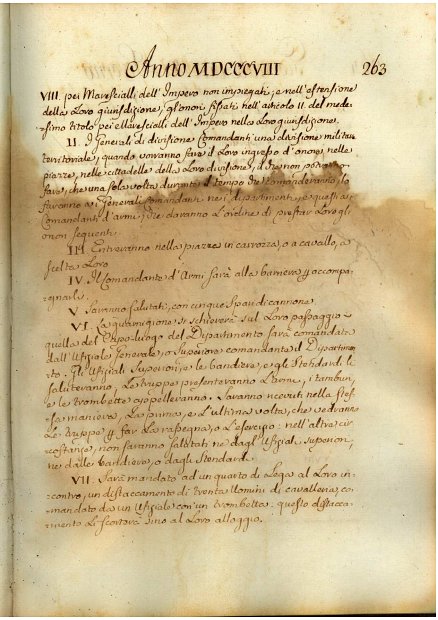 Anno MDCCCVIII
263
VIII. pei Marescialli dell'Impero non impiegati; e nell'estensione
della Loro giurisdizione, gl'onori fissati nell'articolo II. del mede-
simo titolo pei Marescialli dell'Impero nella Loro giurisdizione.
II. I Generali di divisione Comandanti una divisione militare
territoriale, quando vorranno fare il Loro ingresso d'onore nelle
piazze, nelle cittadelle della Loro divisione, il che non potranno
fare, che una sola volta durante il tempo che comanderanno, lo
faranno a Generali Comandanti nei dipartimenti, e questi a
Comandanti d'armi, che daranno L'ordine di prestar Loro gl'
onori seguenti.
III. Entreranno nella piazza in carrozza, o a cavallo, a
scelta Loro.
IV. Il Comandante d'Armi sarà alla barriera p accompa-
gnarli.
V. Saranno salutati, con cinque spari di cannone.
VI. La guarnigione si schiererà sul Loro passaggio
quella del Capo-luogo del Dipartimento sarà comandata
dall'Uffiziale Generale, o Superiore comandante il Dipartimen-
to. Gli Uffiziali Superiori, e le bandiere, e gli Stendardi li
saluteranno, Le truppe presenteranno L'arme, i tamburi,
e le trombette appelleranno. Saranno ricevuti nella stes-
sa maniera, La prima, e L'ultima volta, che vedranno
Le truppe p far La rassegna, o L'esercizio: nell'altre cir-
costanze, non saranno salutati nè dagli Uffiziali Superiori,
nè dalle bandiere, o dagli Stendardi.
VII. Sarà mandato ad un quarto di Lega al Loro in-
contro, un distaccamento di trenta Uomini di cavalleria, co-
mandato da un Uffiziale con un trombetta: questo distacca-
mento Li scorterà sino al Loro alloggio.